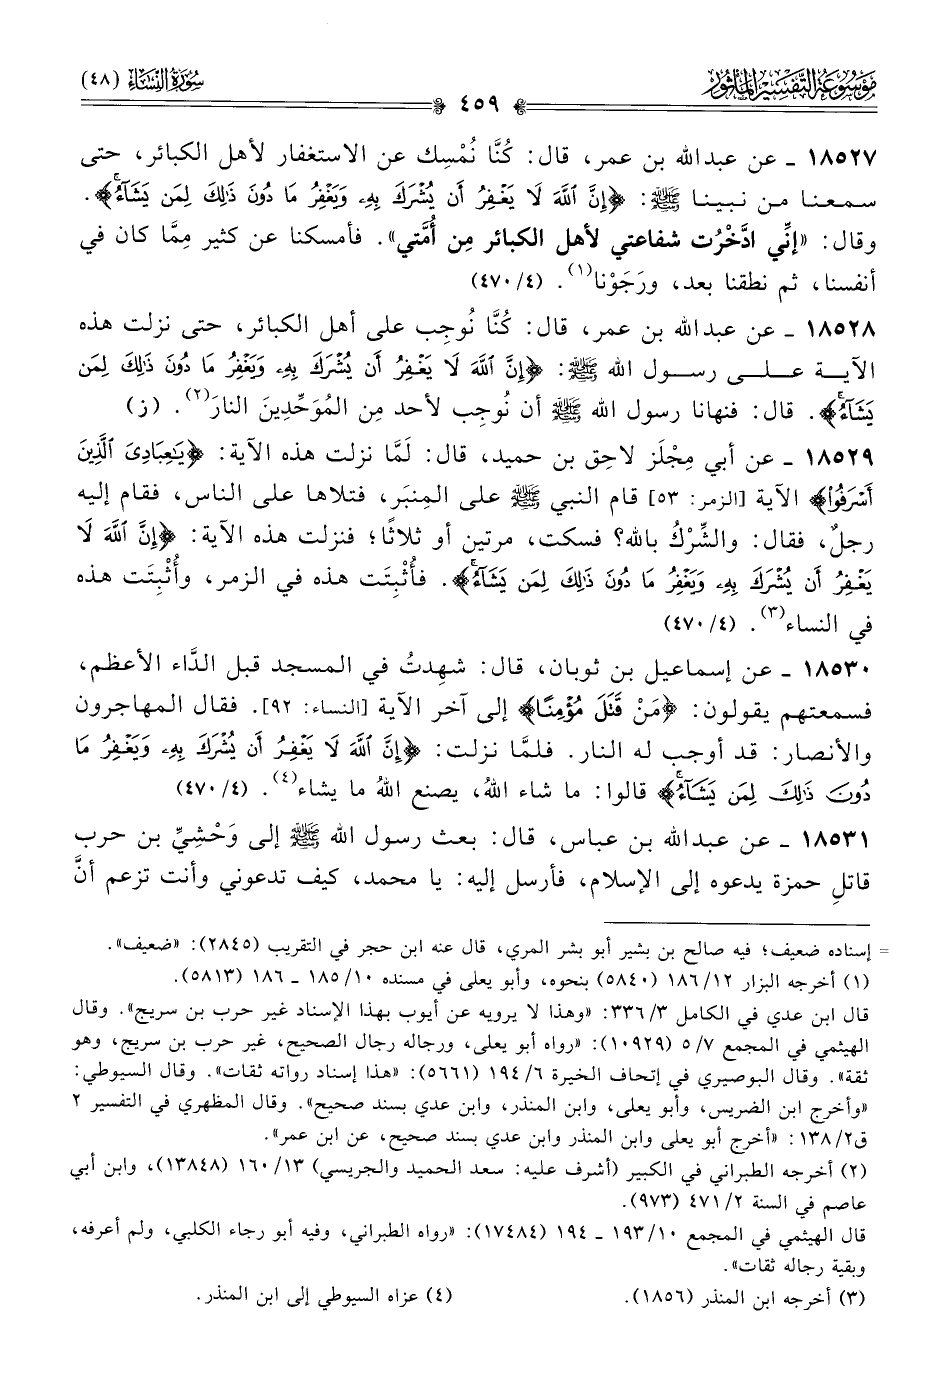 موسوعة التفسير المأثور
سورة النساء (٤٨)
٤٥٩
١٨٥٢٧ ـ عن عبدالله بن عمر، قال: كُنَّا نُمْسِك عن الاستغفار لأهل الكبائر، حتى
سمعنا من نبينا ﷺ: ﴿إِنَّ ٱللَّهَ لَا يَغْفِرُ أَن يُشْرَكَ بِهِۦ وَيَغْفِرُ مَا دُونَ ذَٰلِكَ لِمَن يَشَآءُۚ﴾.
وقال: «إنِّي ادَّخَرْت شفاعتي لأهل الكبائر مِن أُمَّتي». فأمسكنا عن كثير مِمَّا كان في
أنفسنا، ثم نطقنا بعد، ورَجَوْنا(١). (٤/ ٤٧٠)
١٨٥٢٨ ـ عن عبدالله بن عمر، قال: كُنَّا نُوجِب على أهل الكبائر، حتى نزلت هذه
الآية على رسول الله ﷺ: ﴿إِنَّ ٱللَّهَ لَا يَغْفِرُ أَن يُشْرَكَ بِهِۦ وَيَغْفِرُ مَا دُونَ ذَٰلِكَ لِمَن
يَشَآءُۚ﴾. قال: فنهانا رسول الله ﷺ أن نُوجِب لأحد مِن المُوَحِّدِينَ النارَ(٢). (ز)
١٨٥٢٩ ـ عن أبي مِجْلَز لاحِق بن حميد، قال: لَمَّا نزلت هذه الآية: ﴿يَٰعِبَادِىَ ٱلَّذِينَ
أَسْرَفُوا۟﴾ الآية [الزمر: ٥٣] قام النبي ﷺ على المِنبَر، فتلاها على الناس، فقام إليه
رجلٌ، فقال: والشِّرْكُ بالله؟ فسكت، مرتين أو ثلاثًا؛ فنزلت هذه الآية: ﴿إِنَّ ٱللَّهَ لَا
يَغْفِرُ أَن يُشْرَكَ بِهِۦ وَيَغْفِرُ مَا دُونَ ذَٰلِكَ لِمَن يَشَآءُۚ﴾. فأُثْبِتَت هذه في الزمر، وأُثْبِتَت هذه
في النساء(٣). (٤/ ٤٧٠)
١٨٥٣٠ ـ عن إسماعيل بن ثوبان، قال: شهِدتُ في المسجد قبل الدَّاء الأعظم،
فسمعتهم يقولون: ﴿مَنْ قَتَلَ مُؤْمِنًا﴾ إلى آخر الآية [النساء: ٩٢]. فقال المهاجرون
والأنصار: قد أوجب له النار. فلمَّا نزلت: ﴿إِنَّ ٱللَّهَ لَا يَغْفِرُ أَن يُشْرَكَ بِهِۦ وَيَغْفِرُ مَا
دُونَ ذَٰلِكَ لِمَن يَشَآءُۚ﴾ قالوا: ما شاء اللهُ، يصنع اللهُ ما يشاء(٤). (٤/ ٤٧٠)
١٨٥٣١ ـ عن عبدالله بن عباس، قال: بعث رسول الله ﷺ إلى وَحْشِيِّ بن حرب
قاتلِ حمزة يدعوه إلى الإسلام، فأرسل إليه: يا محمد، كيف تدعوني وأنت تزعم أنَّ
= إسناده ضعيف؛ فيه صالح بن بشير أبو بشر المري، قال عنه ابن حجر في التقريب (٢٨٤٥): «ضعيف».
(١) أخرجه البزار ١٢/ ١٨٦ (٥٨٤٠) بنحوه، وأبو يعلى في مسنده ١٠/ ١٨٥ ـ ١٨٦ (٥٨١٣).
قال ابن عدي في الكامل ٣/ ٣٣٦: «وهذا لا يرويه عن أيوب بهذا الإسناد غير حرب بن سريج». وقال
الهيثمي في المجمع ٧/ ٥ (١٠٩٢٩): «رواه أبو يعلى، ورجاله رجال الصحيح، غير حرب بن سريج، وهو
ثقة». وقال البوصيري في إتحاف الخيرة ٦/ ١٩٤ (٥٦٦١): «هذا إسناد رواته ثقات». وقال السيوطي:
«وأخرج ابن الضريس، وأبو يعلى، وابن المنذر، وابن عدي بسند صحيح». وقال المظهري في التفسير ٢
ق٢/ ١٣٨: «أخرج أبو يعلى وابن المنذر وابن عدي بسند صحيح، عن ابن عمر».
(٢) أخرجه الطبراني في الكبير (أشرف عليه: سعد الحميد والجريسي) ١٣/ ١٦٠ (١٣٨٤٨)، وابن أبي
عاصم في السنة ٢/ ٤٧١ (٩٧٣).
قال الهيثمي في المجمع ١٠/ ١٩٣ ـ ١٩٤ (١٧٤٨٤): «رواه الطبراني، وفيه أبو رجاء الكلبي، ولم أعرفه،
وبقية رجاله ثقات».
(٣) أخرجه ابن المنذر (١٨٥٦).
(٤) عزاه السيوطي إلى ابن المنذر.